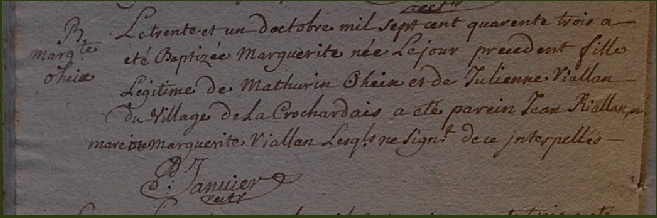 B
Marg.te
oheix
Le trente et un doctobre mil sept cent quarente trois a
eté Baptizée Marguerite née Le jour precedent fille
Légitime de Mathurin Oheix et de Julienne Viallan
du Village de La Crochardais a eté parein Jean Riallan, et
mareine Marguerite Viallan Lesq.ls ne sign.t de ce interpellés
P: Janvier
rectr